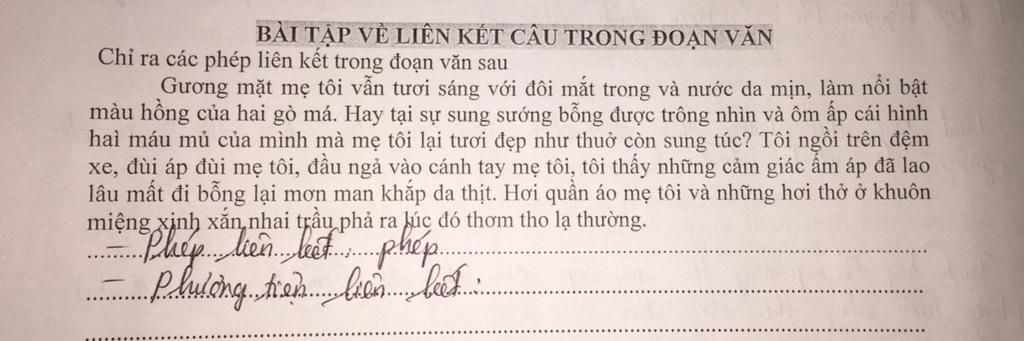 BÀI TẬP VỀ LIÊN KẾT CÂU TRONG ĐOẠN VĂN
Chỉ ra các phép liên kết trong đoạn văn sau
Gương mặt mẹ tôi vẫn tươi sáng với đôi mắt trong và nước da mịn, làm nổi bật
màu hồng của hai gò má. Hay tại sự sung sướng bỗng được trông nhìn và ôm ấp cái hình
hài máu mủ của mình mà mẹ tôi lại tươi đẹp như thuở còn sung túc? Tôi ngồi trên đệm
xe, đùi áp đùi mẹ tôi, đầu ngả vào cánh tay mẹ tôi, tôi thấy những cảm giác ấm áp đã lao
lâu mất đi bỗng lại mơn man khắp da thịt. Hơi quần áo mẹ tôi và những hơi thở ở khuôn
miệng xinh xắn nhai trầu phả ra lúc đó thơm tho lạ thường.
- Phép liên kết : phép
- Phương tiện liên kết :